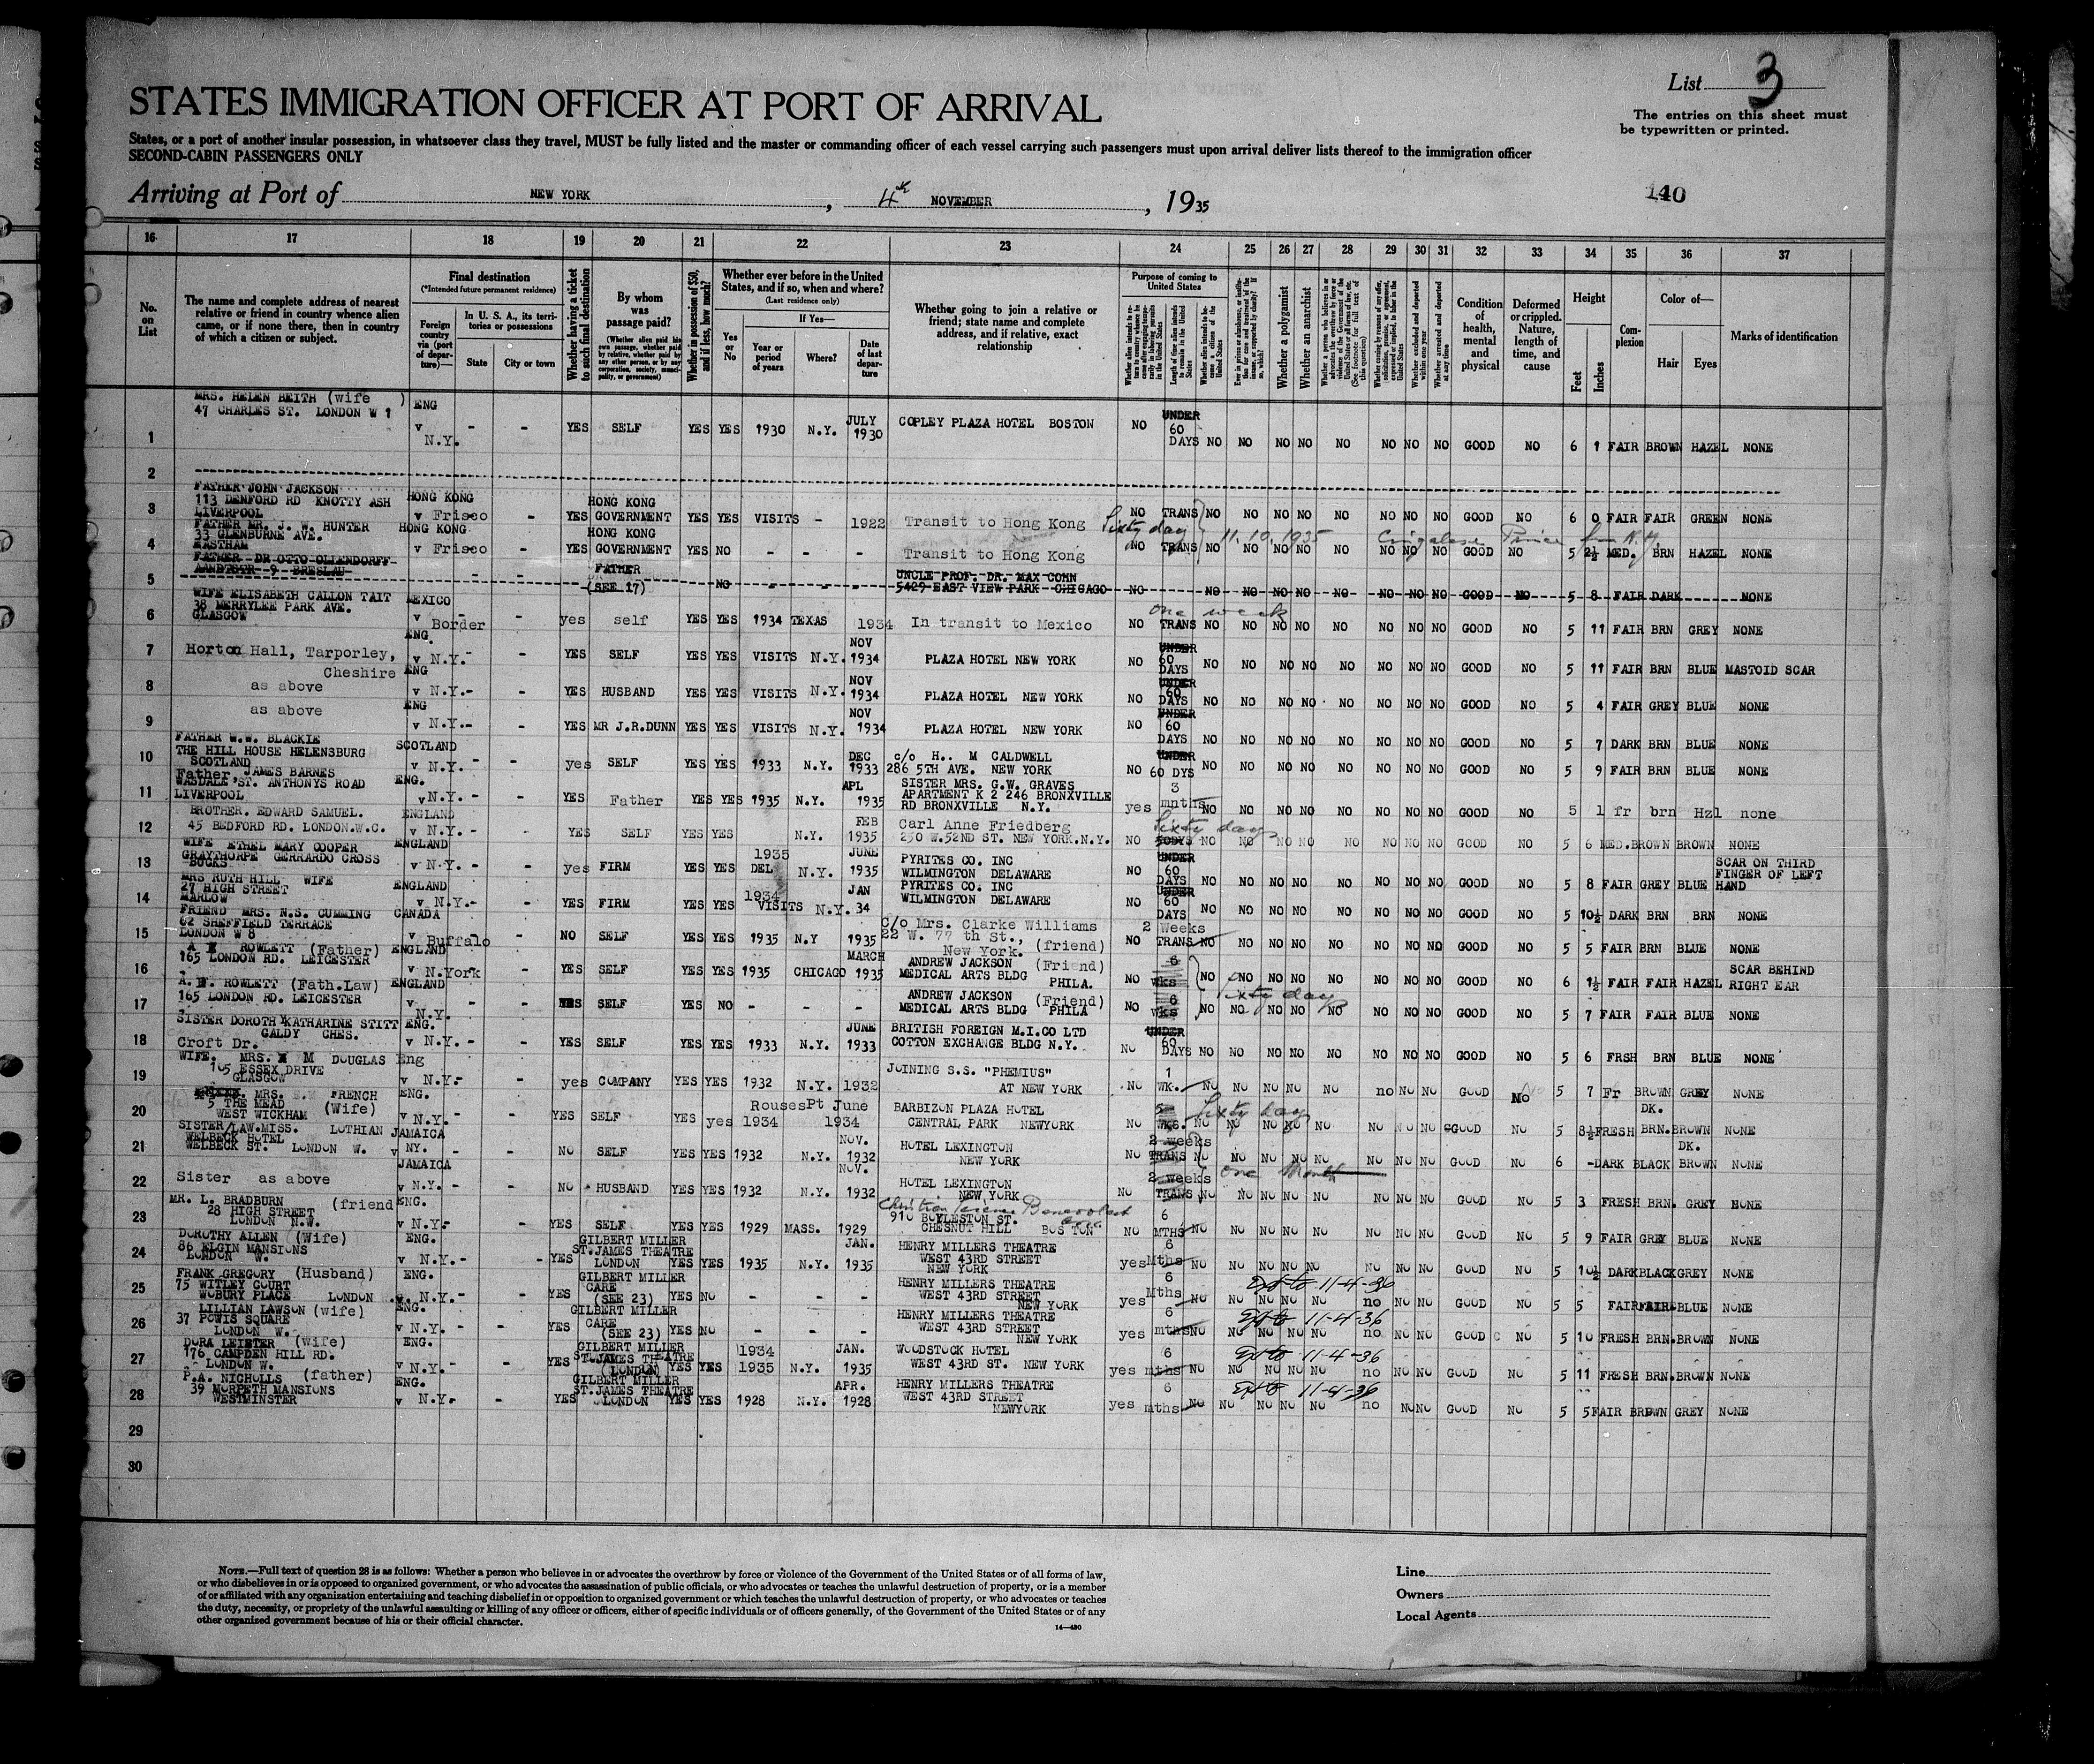 List 3
STATES IMMIGRATION OFFICER AT PORT OF ARRIVAL
The entries on this sheet must
be typewritten or printed.
States, or a port of another insular possession, in whatsoever class they travel, MUST be fully listed and the master or commanding officer of each vessel carrying such passengers must upon arrival deliver lists thereof to the immigration officer
SECOND-CABIN PASSENGERS ONLY
Arriving at Port of NEW YORK, 4th NOVEMBER, 1935
140
16 17 18 19 20 21 22 23 24 25 26 27 28 29 30 31 32 33 34 35 36 37
No. on List
The name and complete address of nearest relative or friend in country whence alien came, or if none there, then in country of which a citizen or subject.
Final destination
(*Intended future permanent residence)
Foreign country via (port of departure)—
In U. S. A., its territories or possessions
State
City or town
Whether having a ticket to such final destination
By whom was passage paid?
(Whether alien paid his own passage, whether paid by relative, whether paid by any other person, or by any corporation, society, municipality, or government)
Whether in possession of $50, and if less, how much?
Whether ever before in the United States, and if so, when and where?
(Last residence only)
Yes or No
If Yes—
Year or period of years
Where?
Date of last departure
Whether going to join a relative or friend; state name and complete address, and if relative, exact relationship
Purpose of coming to United States
Whether alien intends to return to country whence he came after engaging temporarily in laboring pursuits in the United States
Length of time alien intends to remain in the United States
Whether alien intends to become a citizen of the United States
Whether a polygamist
Whether an anarchist
Whether excluded and deported within one year
Whether arrested and deported at any time
Condition of health, mental and physical
Deformed or crippled. Nature, length of time, and cause
Height
Feet
Inches
Complexion
Color of—
Hair
Eyes
Marks of identification
MRS. HELEN BEITH (wife )
47 CHARLES ST. LONDON W 1
1 ENG v N.Y. - - YES SELF YES YES 1930 N.Y. JULY 1930 COPLEY PLAZA HOTEL BOSTON NO UNDER 60 DAYS NO NO NO NO NO NO NO NO GOOD NO 6 1 FAIR BROWN HAZEL NONE
2
FATHER JOHN JACKSON
113 DENFORD RD KNOTTY ASH
LIVERPOOL
3 HONG KONG v Frisco - YES HONG KONG GOVERNMENT YES YES VISITS - 1922 Transit to Hong Kong NO TRANS NO NO NO NO NO NO NO NO GOOD NO 6 0 FAIR FAIR GREEN NONE
Sixty day 11.10.1935 Cingalese Prince from N.Y.
FATHER MR. J. W. HUNTER
33 GLENBURNE AVE.
EASTHAM
4 HONG KONG v Frisco - YES HONG KONG GOVERNMENT YES NO - - - Transit to Hong Kong NO TRANS NO NO NO NO NO NO NO NO GOOD NO 5 2½ MED. BRN HAZEL NONE
FATHER DR OTTO OLLENDORFF
9 BRESLAU
5 - - FATHER (SEE 17) NO - - - UNCLE PROF. DR. MAX COHN 5429 EAST VIEW PARK CHICAGO NO NO NO NO NO NO NO NO NO GOOD NO 5 8 FAIR DARK NONE
WIFE ELISABETH CALLON TAIT
38 MERRYLEE PARK AVE.
GLASGOW
6 MEXICO v Border - yes self YES YES 1934 TEXAS 1934 In transit to Mexico NO one week TRANS NO NO NO NO NO NO NO NO GOOD NO 5 11 FAIR BRN GREY NONE
7 Horton Hall, Tarporley, Cheshire ENG. v N.Y. - - YES SELF YES YES VISITS N.Y. NOV 1934 PLAZA HOTEL NEW YORK NO UNDER 60 DAYS NO NO NO NO NO NO NO NO GOOD NO 5 11 FAIR BRN BLUE MASTOID SCAR
8 as above ENG v N.Y. - - YES HUSBAND YES YES VISITS N.Y. NOV 1934 PLAZA HOTEL NEW YORK NO UNDER 60 DAYS NO NO NO NO NO NO NO NO GOOD NO 5 4 FAIR GREY BLUE NONE
9 as above ENG v N.Y. - - YES MR J.R.DUNN YES YES VISITS N.Y. NOV 1934 PLAZA HOTEL NEW YORK NO UNDER 60 DAYS NO NO NO NO NO NO NO NO GOOD NO 5 7 DARK BRN BLUE NONE
FATHER W.W. BLACKIE
THE HILL HOUSE HELENSBURG
SCOTLAND
10 SCOTLAND v N.Y. - - yes SELF YES YES 1933 N.Y. DEC 1933 c/o H.. M CALDWELL 286 5TH AVE. NEW YORK NO UNDER 60 DYS NO NO NO NO NO NO NO NO GOOD NO 5 9 FAIR BRN BLUE NONE
Father, JAMES BARNES
WASDALE ST. ANTHONYS ROAD
LIVERPOOL
11 ENG. v N.Y. - - YES Father YES YES 1935 N.Y. APL 1935 SISTER MRS. G.W. GRAVES APARTMENT K 2 246 BRONXVILLE RD BRONXVILLE N.Y. yes 3 mnths NO NO NO NO NO NO NO NO GOOD NO 5 1 fr brn Hzl none
BROTHER. EDWARD SAMUEL.
45 BEDFORD RD. LONDON.W.C.
12 ENGLAND v N.Y. - - YES SELF YES YES N.Y. FEB 1935 Carl Anne Friedberg 250 W.52ND ST. NEW YORK.N.Y. NO Sixty days NO NO NO NO NO NO NO NO GOOD NO 5 6 MED. BROWN BROWN NONE
WIFE ETHEL MARY COOPER
GRAYTHORPE GERRARDO CROSS
BUCKS
13 ENGLAND v N.Y. - - yes FIRM YES YES 1935 DEL N.Y. JUNE 1935 PYRITES CO. INC WILMINGTON DELAWARE NO UNDER 60 DAYS NO NO NO NO NO NO NO NO GOOD NO 5 8 FAIR GREY BLUE SCAR ON THIRD FINGER OF LEFT HAND
MRS RUTH HILL WIFE
27 HIGH STREET
MARLOW
14 ENGLAND v N.Y. - - YES FIRM YES YES 1934 VISITS N.Y. JAN 34 PYRITES CO. INC WILMINGTON DELAWARE NO UNDER 60 DAYS NO NO NO NO NO NO NO NO GOOD NO 5 10½ DARK BRN BRN NONE
FRIEND MRS. N.S. CUMMING
62 SHEFFIELD TERRACE
LONDON W 8
15 CANADA v Buffalo - NO SELF YES YES 1935 N.Y 1935 C/o Mrs. Clarke Williams 22 W. 77 th St., (friend) New York. NO 2 Weeks TRANS NO NO NO NO NO NO NO NO GOOD NO 5 5 FAIR BRN BLUE NONE
A ROWLETT (Father)
165 LONDON RD. LEICESTER
16 ENGLAND v N.York - YES SELF YES YES 1935 CHICAGO MARCH 1935 ANDREW JACKSON (Friend) MEDICAL ARTS BLDG PHILA. NO 6 wks NO NO NO NO NO NO NO NO GOOD NO 6 1½ FAIR FAIR HAZEL SCAR BEHIND RIGHT EAR
sixty days
A. ROWLETT (Fath.Law)
165 LONDON RD. LEICESTER
17 ENGLAND v N.Y. - - YES SELF YES NO - - - ANDREW JACKSON (Friend) MEDICAL ARTS BLDG PHILA NO 6 wks NO NO NO NO NO NO NO NO GOOD NO 5 7 FAIR FAIR BLUE NONE
SISTER DOROTHY KATHARINE STITT
Croft Dr. CALDY CHES.
18 ENG. v N.Y. - - YES SELF YES YES 1933 N.Y. JUNE 1933 BRITISH FOREIGN M.I.CO LTD COTTON EXCHANGE BLDG N.Y. NO UNDER 60 DAYS NO NO NO NO NO NO NO NO GOOD NO 5 6 FRSH BRN BLUE NONE
WIFE. MRS. M DOUGLAS
105 ESSEX DRIVE
GLASGOW
19 Eng v N.Y. - - yes COMPANY YES YES 1932 N.Y. 1932 JOINING S.S. "PHEMIUS" AT NEW YORK NO 1 WK. NO NO NO NO NO no NO NO GOOD No 5 7 Fr BROWN GREY NONE
MRS. FRENCH
5 THE MEAD (Wife)
WEST WICKHAM
20 ENG. v N.Y. - - YES SELF YES yes RousesPt June 1934 1934 BARBIZON PLAZA HOTEL CENTRAL PARK NEWYORK NO 5 wks. Sixty days NO NO NO NO NO NO NO NO GOOD NO 5 8½ FRESH DK. BRN. BROWN NONE
SISTER/LAW.MISS. LOTHIAN
WELBECK HOTEL
WELBECK ST. LONDON W.
21 JAMAICA v NY. - - NO SELF YES YES 1932 N.Y. NOV. 1932 HOTEL LEXINGTON NEW YORK NO 2 weeks TRANS NO NO NO NO NO NO NO NO GOOD NO 6 - DARK BLACK DK. BROWN NONE
one Month
22 Sister as above JAMAICA v N.Y. - - NO HUSBAND YES YES 1932 N.Y. NOV. 1932 HOTEL LEXINGTON NEW YORK NO 2 weeks TRANS NO NO NO NO NO NO NO NO GOOD NO 5 3 FRESH BRN. GREY NONE
MR. L. BRADBURN (friend
28 HIGH STREET
LONDON N.W.
23 ENG. v N.Y. - - YES SELF YES YES 1929 MASS. 1929 Christian Science Benevolent Assn 910 BOYLESTON ST. CHESNUT HILL BOSTON NO 6 MTHS NO NO NO NO NO NO NO NO GOOD NO 5 9 FAIR GREY BLUE NONE
DOROTHY ALLEN (Wife)
86 ELGIN MANSIONS
LONDON W.
24 ENG. v N.Y. - - YES GILBERT MILLER ST.JAMES THEATRE LONDON YES YES 1935 N.Y. JAN. 1935 HENRY MILLERS THEATRE WEST 43RD STREET NEW YORK yes 6 Mths NO NO NO NO NO NO NO NO GOOD NO 5 10½ DARK BLACK GREY NONE
FRANK GREGORY (Husband)
75 WITLEY COURT
WOBURY PLACE LONDON
25 ENG. v. N.Y. - - YES GILBERT MILLER CARE (SEE 23) YES NO - - - HENRY MILLERS THEATRE WEST 43RD STREET NEW YORK yes 6 Mths NO Ext to 11-4-36 NO NO NO NO no NO NO GOOD NO 5 5 FAIR FAIR BLUE NONE
LILLIAN LAWSON (wife)
37 POWIS SQUARE
LONDON W.
26 ENG. v N.Y. - - YES GILBERT MILLER CARE (SEE 23) YES NO - - - HENRY MILLERS THEATRE WEST 43RD STREET NEW YORK yes 6 mths NO Ext to 11-4-36 NO NO NO NO no NO NO GOOD NO 5 10 FRESH BRN. BROWN NONE
DORA LEISTER (Wife)
176 CAMPDEN HILL RD.
LONDON W.
27 ENG. v N.Y. - - YES GILBERT MILLER ST.JAMES THEATRE (LONDON) YES YES 1934 1935 N.Y. JAN. 1935 WOODSTOCK HOTEL WEST 43RD ST. NEW YORK yes 6 mths NO Ext to 11-4-36 NO NO NO NO no NO NO GOOD NO 5 11 FRESH BRN. BROWN NONE
P.A. NICHOLLS (father)
39 MORPETH MANSIONS
WESTMINSTER
28 ENG. v N.Y. - - YES GILBERT MILLER ST.JAMES THEATRE LONDON YES YES 1928 N.Y. APR. 1928 HENRY MILLERS THEATRE WEST 43RD STREET NEWYORK yes 6 mths NO Ext to 11-4-36 NO NO NO NO no NO NO GOOD NO 5 5 FAIR BROWN GREY NONE
29
30
NOTE.—Full text of question 28 is as follows: Whether a person who believes in or advocates the overthrow by force or violence of the Government of the United States or of all forms of law,
or who disbelieves in or is opposed to organized government, or who advocates the assassination of public officials, or who advocates or teaches the unlawful destruction of property, or is a member
of or affiliated with any organization entertaining and teaching disbelief in or opposition to organized government or which teaches the unlawful destruction of property, or who advocates or teaches
the duty, necessity, or propriety of the unlawful assaulting or killing of any officer or officers, either of specific individuals or of officers generally, of the Government of the United States or of any
other organized government because of his or their official character.
14—430
Line
Owners
Local Agents